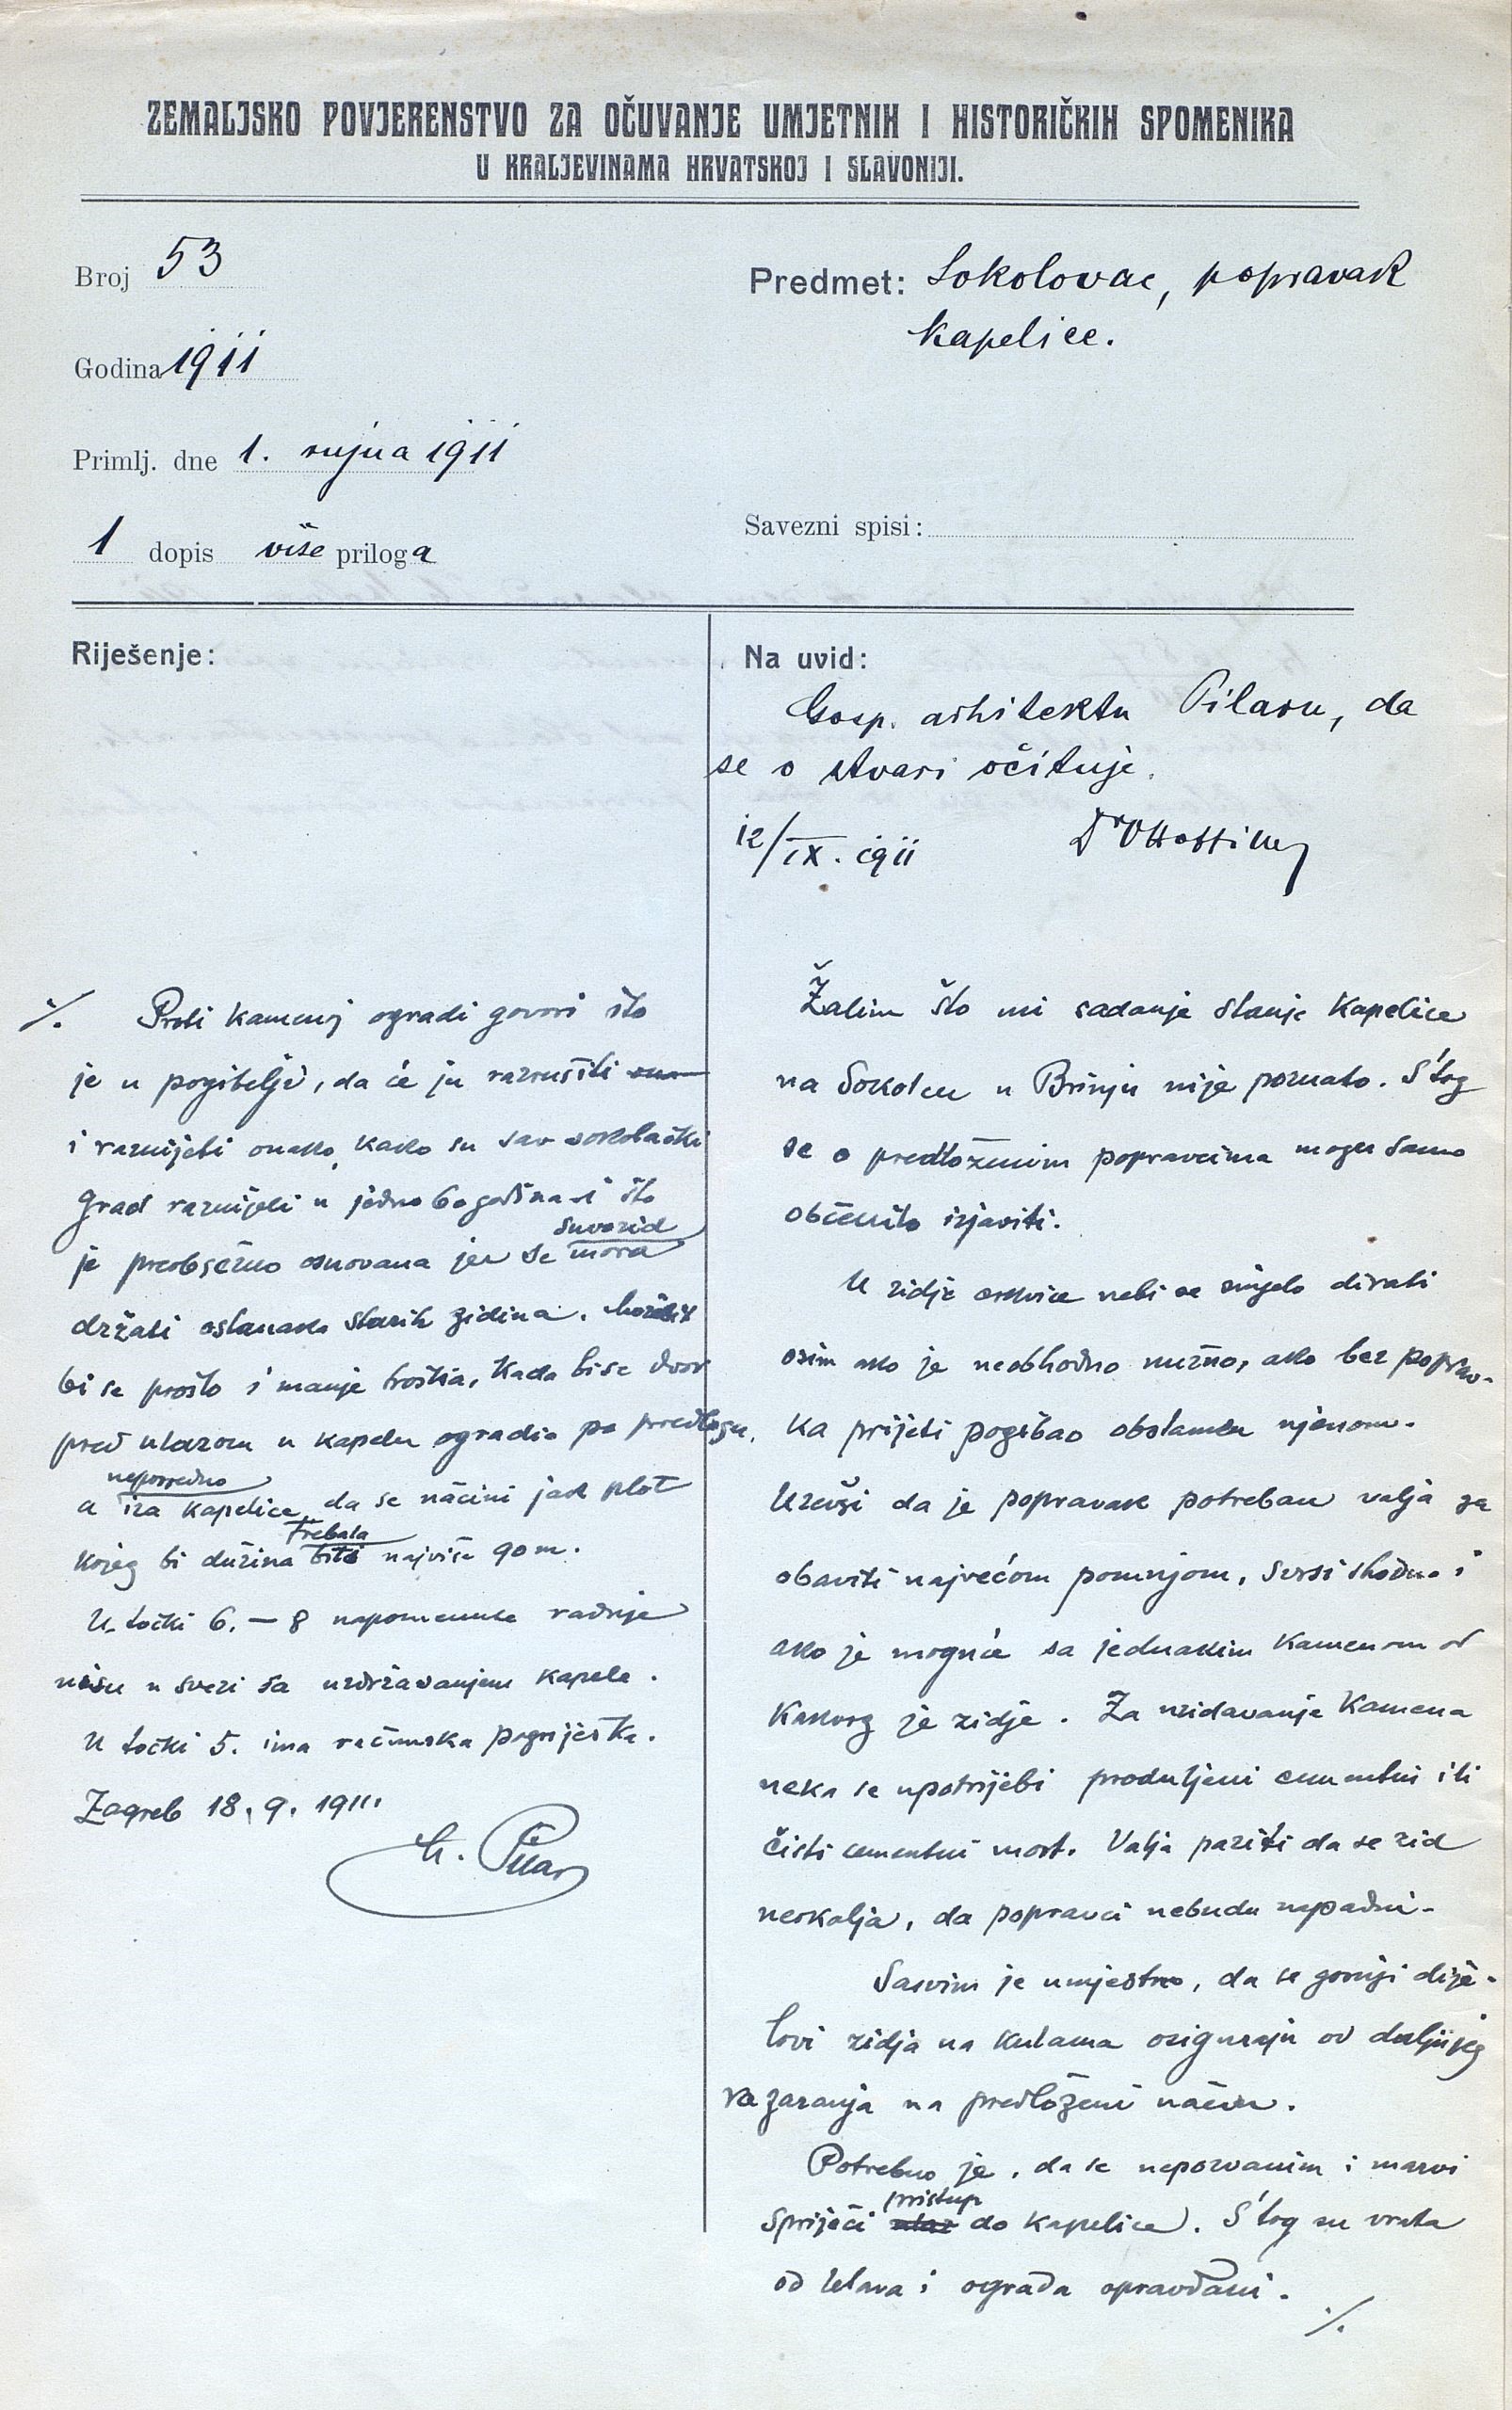 ZEMALJSKO POVJERENSTVO ZA OČUVANJE UMJETNIH I HISTORIČKIH SPOMENIKA
U KRALJEVINAMA HRVATSKOJ I SLAVONIJI.
Broj 53
Godina 1911
Primlj. dne 1. rujna 1911
1 dopis više priloga
Predmet: Sokolovac, popravak
kapelice.
Savezni spisi:
Riješenje:
Na uvid:
Gosp. arhitektu Pilaru, da
se o stvari očituje.
12/IX. 1911
Žalim što mi sadanje stanje kapelice
na Sokolcu u Brinju nije poznato. S'tog
se o predloženim popravcima mogu samo
občenito izjaviti.
U zidje crkvice nebi se smjelo dirati
osim ako je neobhodno nužno, ako bez poprav-
ka prijeti pogibao obstanku njenom.
Uzevši da je popravak potreban valja ga
obaviti najvećom pomnjom, svrsi shodno i
ako je moguće sa jednakim kamenom od
kakvog je zidje. Za uzidavanje kamena
neka se upotrijebi produljeni cementni ili
čisti cementni mort. Valja paziti da se zid
neokalja, da popravci nebudu napadni.
Sasvim je umjestno, da se gornji dije-
lovi zidja na kulama osiguraju od daljnjeg
razaranja na predloženi način.
Potrebno je, da se nepozvanim i marvi
spriječi pristup do kapelice. S'tog su vrata
od ulaza i ograda opravdani.
./.
./. Proti kamenoj ogradi govori što
je u pogibelji, da će ju razrušiti
i raznijeti onako, kako su sav sokolački
grad raznijeli u jedno 60 godina i što
je preobsežno osnovana jer se suvozid mora
držati ostanaka starih zidina.
bi se prošlo i manje troška, kada bi se dvor
pred ulazom u kapelu ogradio po predlogu,
a neposredno iza kapelice da se načini jak plot
kojeg bi dužina trebala biti najviše 90 m.
U točki 6. – 8 napomenute radnje
nisu u svezi sa uzdržavanjem kapele.
U točki 5. ima računska pogrješka.
Zagreb 18. 9. 1911.
M. Pilar